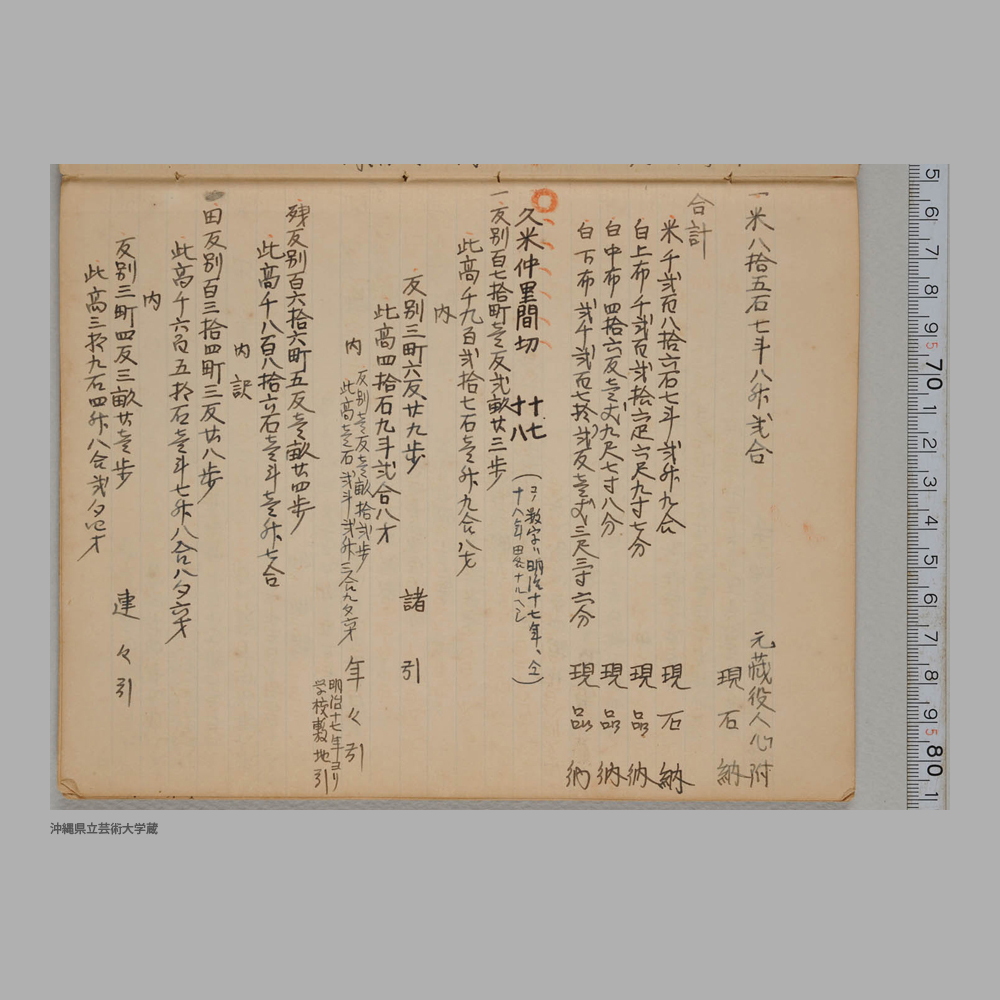 一米八拾五石七斗八升弐合
元蔵役人心附
現石納
合計
米千弐百八拾六石七斗弐升九合 現石納
白上布千弐百弐拾六疋六尺九寸七分 現品納
白中布四拾六反壱丈九尺七寸八分 現品納
白下布弐千弐百七拾弐反壱丈三尺三寸六分 現品納
久米仲里間切 十七 十八
(コノ数字ハ明治十七年、仝十八年田畧ナルヘシ)
一反別百七拾町壱反弐畝廿三歩
此高千九百弐拾七石壱升九合八才
内
反別三町六反廿九歩 諸引
此高四拾石九斗弐合八才
内 反別壱反壱畝拾弐歩 年々引
此高壱石弐斗弐升三合九夕六才
明治十七年ヨリ
学校敷地引
残反別百六拾六町五反壱畝廿四歩
此高千八百八拾六石壱斗壱升七合
内訳
田反別百三拾四町三反廿八歩
此高千六百五拾石壱斗七升八合八夕六才
内
反別三町四反三畝廿壱歩 連々引
此高三拾九石四升八合弐夕四才
5 6 7 8 9 5 70 1 2 3 4 5 6 7 8 9 5 80 1
沖縄県立芸術大学蔵